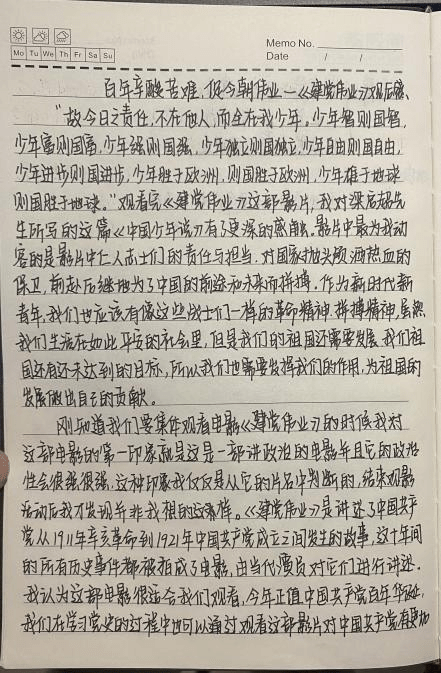 Memo No.
Mo Tu We Th Fr Sa Su
Date / /
百年辛酸苦难,促今朝伟业—《建党伟业》观后感、
“故今日之责任,不在他人,而全在我少年。少年智则国智,
少年富则国富,少年强则国强,少年独立则国独立,少年自由则国自由,
少年进步则国进步,少年胜于欧洲,则国胜于欧洲,少年雄于地球
则国胜于地球。”观看完《建党伟业》这部影片,我对梁启超先
生所写的这篇《中国少年说》有了更深的感触。影片中最为我动
容的是影片中仁人志士们的责任与担当,对国家抛头颅洒热血的
保卫,前赴后继地为了中国的前途和未来而拼搏。作为新时代新
青年,我们也应该有像这些战士们一样的革命精神,拼搏精神,虽然
我们生活在如此平安的社会里,但是我们的祖国还需要发展,我们祖
国还有还未达到的目标,所以我们也需要发挥我们的作用,为祖国的
发展做出自己的贡献。
刚知道我们要集体观看电影《建党伟业》的时候我对
这部电影的第一印象就是这是一部讲政治的电影并且它的政治
性会很强很强,这种印象我仅仅是从它的片名中判断的,结束观影
活动后我才发现并非我想的这样。《建党伟业》是讲述了中国共产
党从1911年辛亥革命到1921年中国共产党成立之间发生的故事,这十年间
的所有历史事件都被拍成了电影,由当代演员对它们进行讲述。
我认为这部电影很适合我们观看,今年正值中国共产党百年华诞,
我们在学习党史的过程中也可以通过观看这部影片对中国共产党有更加